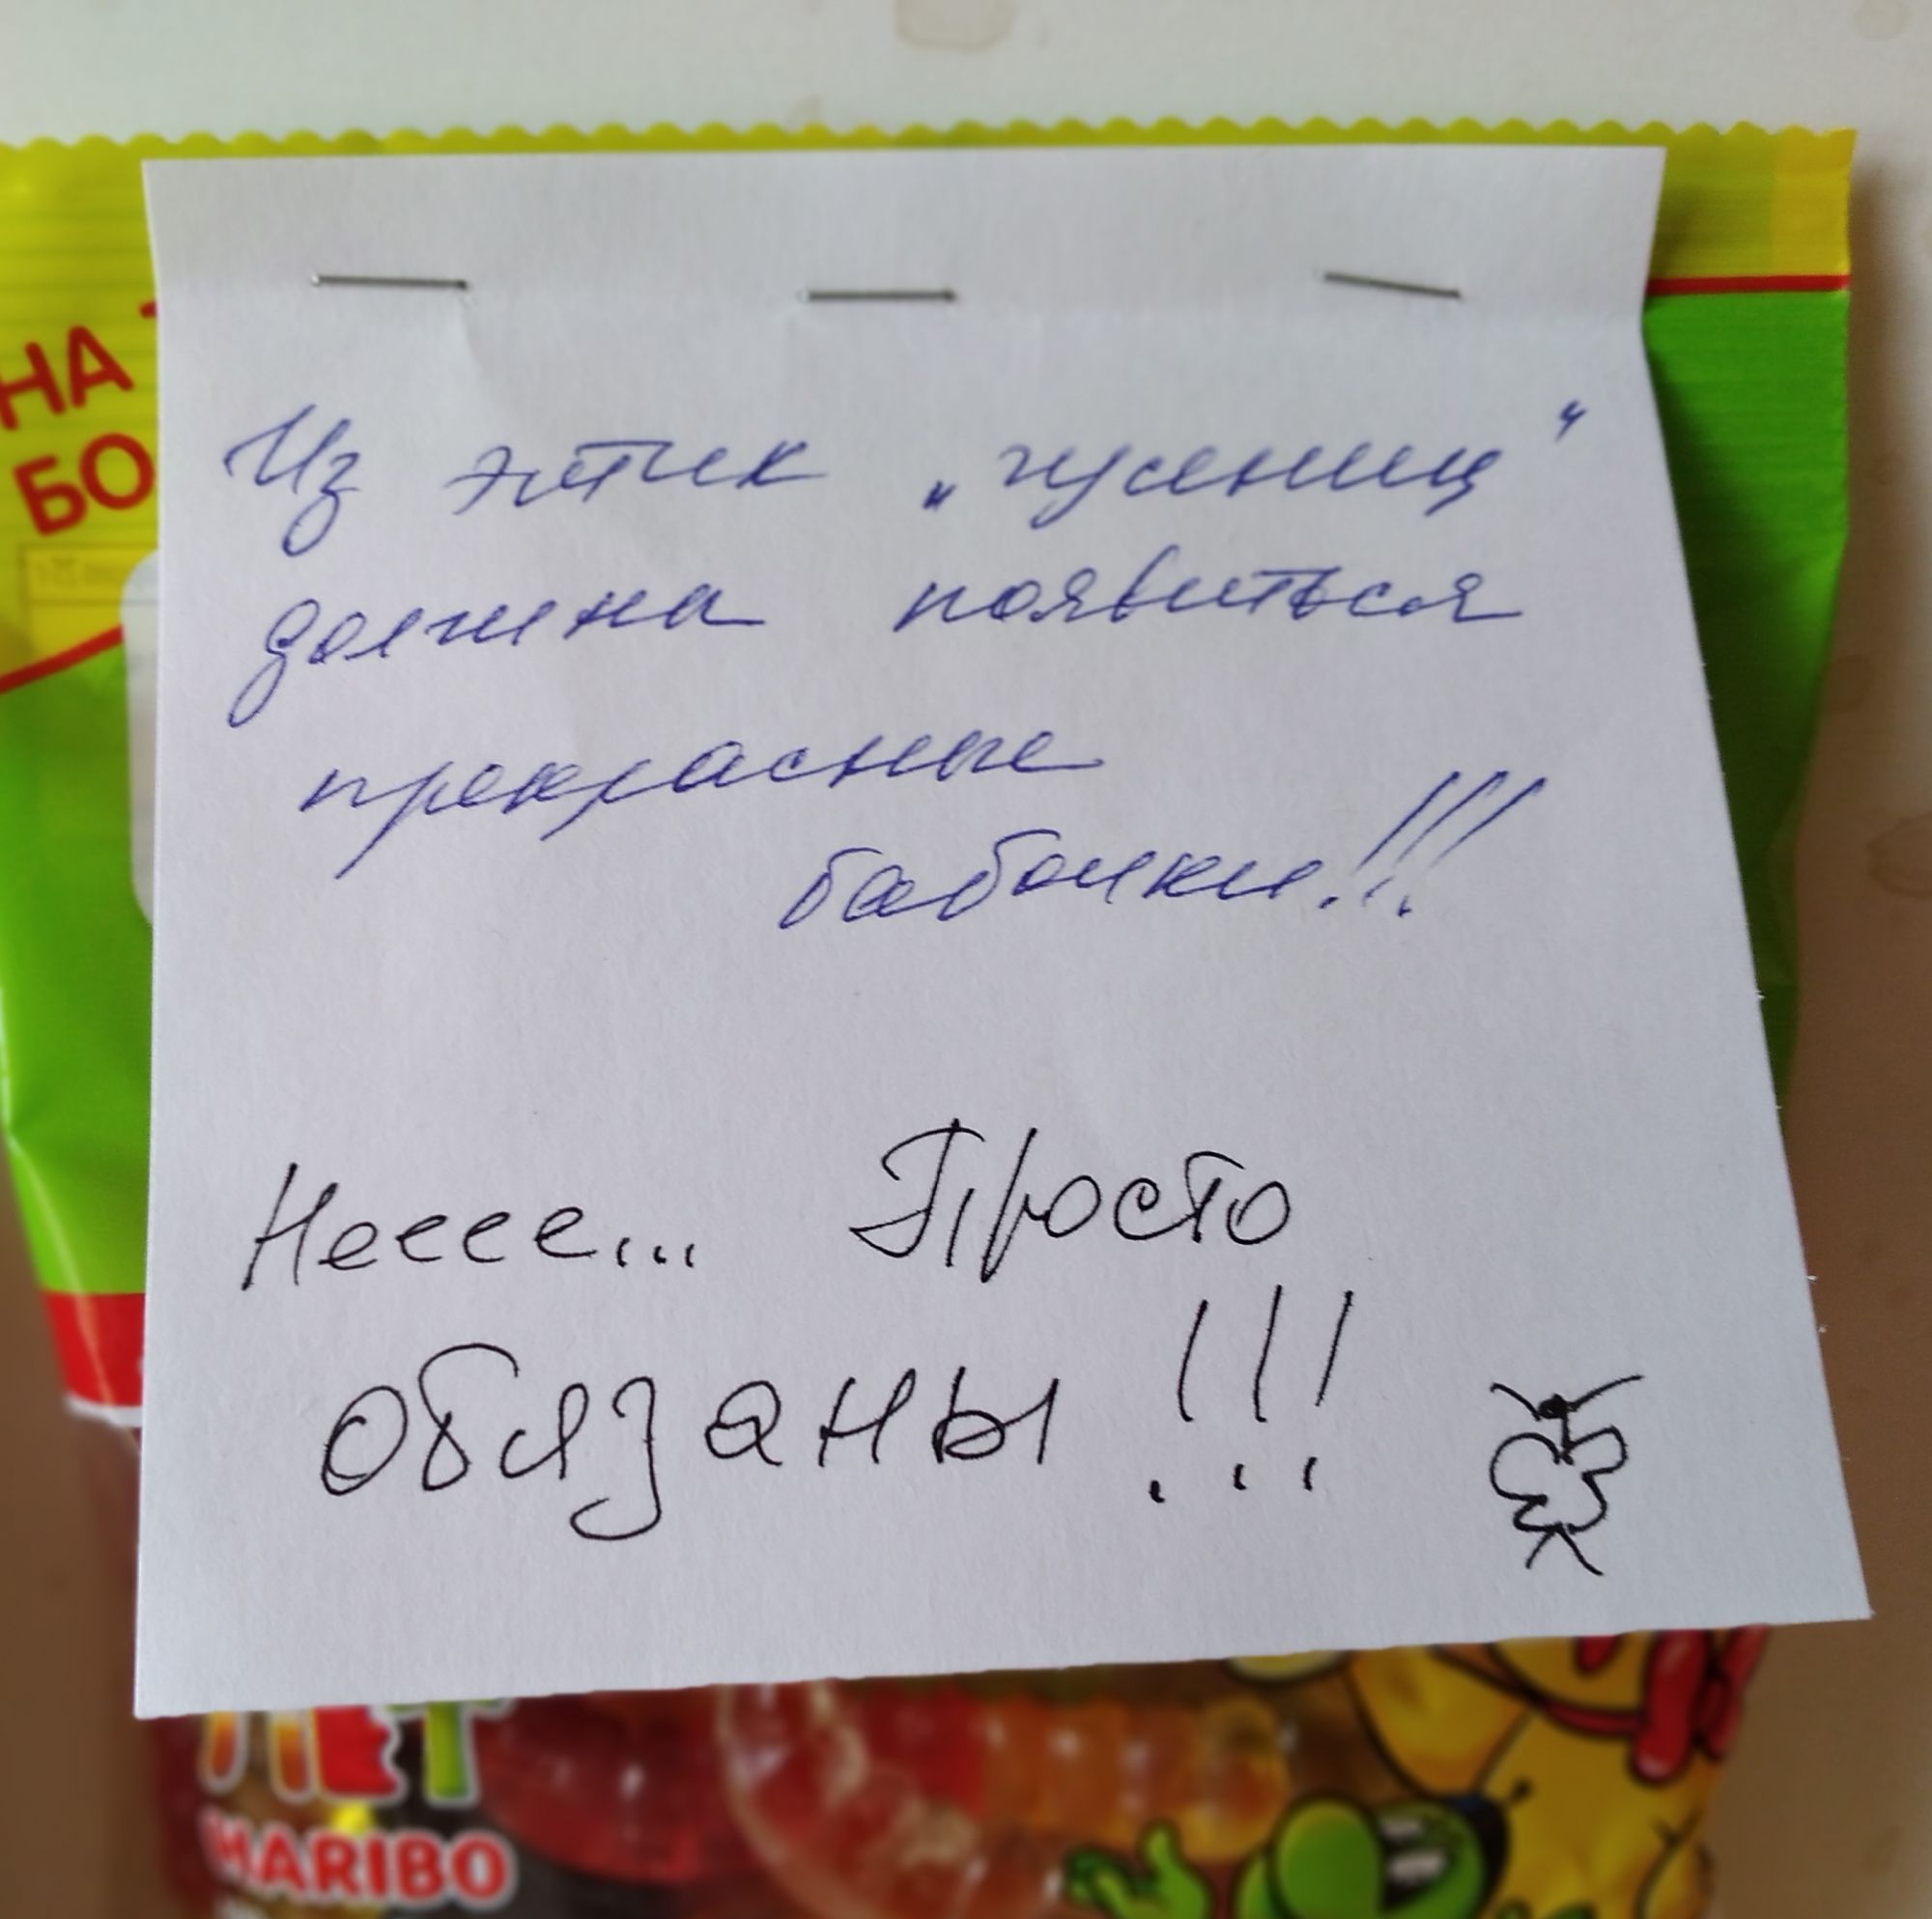 НА
БО
Из этих „гусениц“
должна появиться
прекрасные
бабочки!!!
Неeee... Просто
обязаны!!!
ЛЕТ
HARIBO